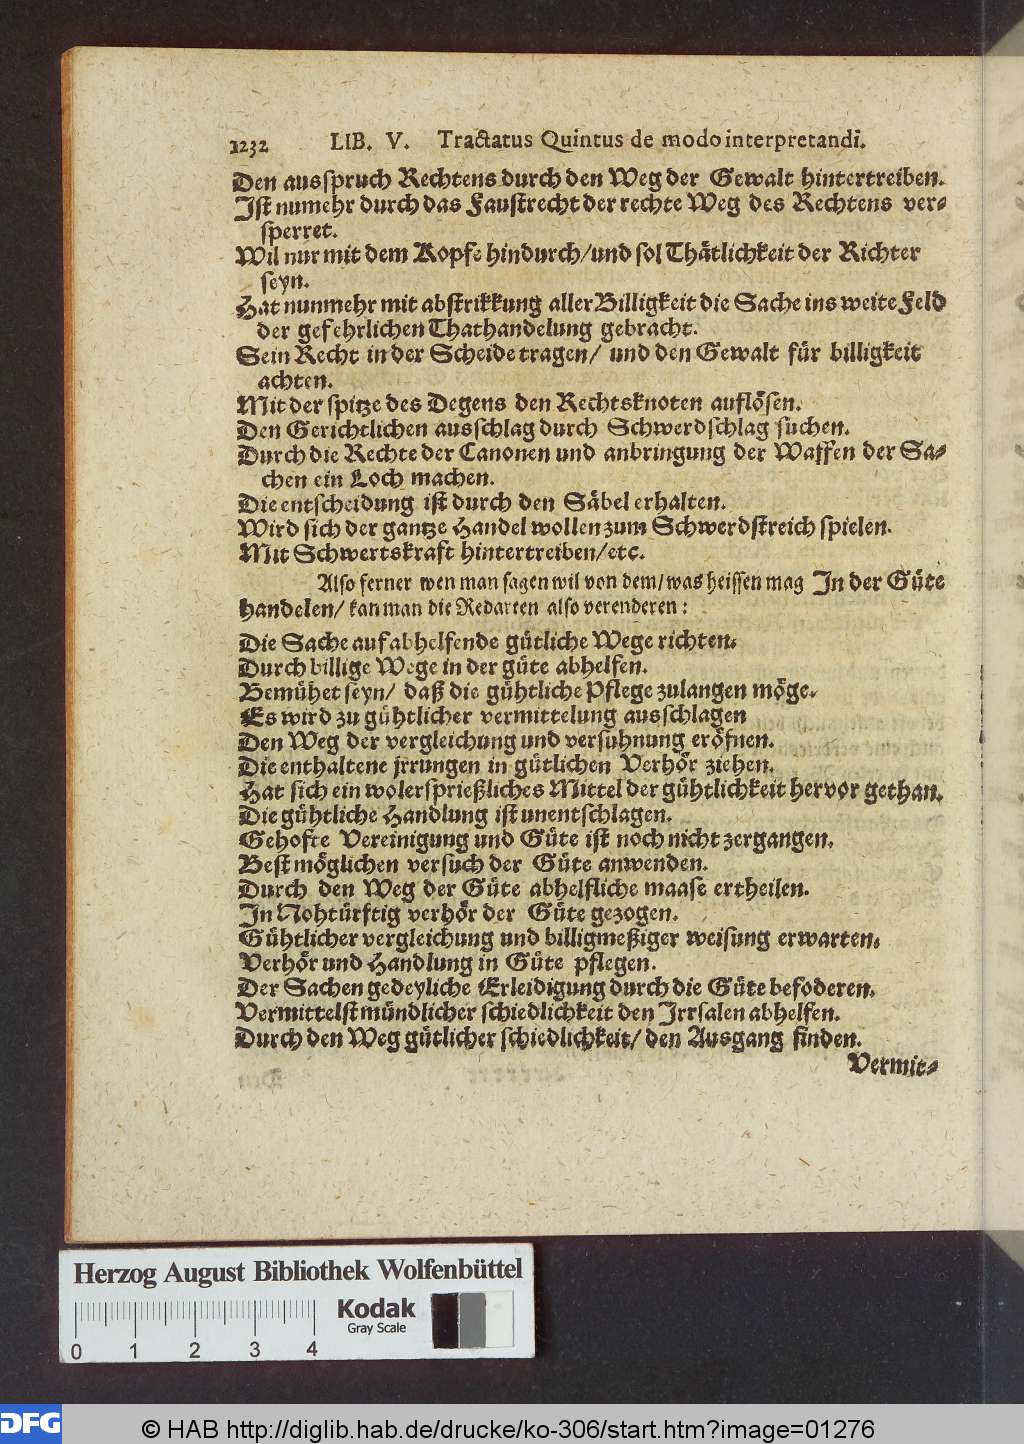 1232 LIB. V. Tractatus Quintus de modo interpretandi.
Den ausspruch Rechtens durch den Weg der Gewalt hintertreiben.
Ist numehr durch das Faustrecht der rechte Weg des Rechtens ver-
sperret.
Wil nur mit dem Kopfe hindurch/und sol Thätlichkeit der Richter
seyn.
Hat nunmehr mit abstrikkung aller Billigkeit die Sache ins weite Feld
der gefehrlichen Thathandelung gebracht.
Sein Recht in der Scheide tragen/ und den Gewalt für billigkeit
achten.
Mit der spitze des Degens den Rechtsknoten auflösen.
Den Gerichtlichen ausschlag durch Schwerdschlag suchen.
Durch die Rechte der Canonen und anbringung der Waffen der Sa-
chen ein Loch machen.
Die entscheidung ist durch den Säbel erhalten.
Wird sich der gantze Handel wollen zum Schwerdstreich spielen.
Mit Schwertskraft hintertreiben/etc.
Also ferner wen man sagen wil von dem/was heissen mag In der Güte
handelen/ kan man die Redarten also verenderen:
Die Sache auf abhelfende gütliche Wege richten.
Durch billige Wege in der güte abhelfen.
Bemühet seyn/ daß die gühtliche Pflege zulangen möge.
Es wird zu gühtlicher vermittelung ausschlagen
Den Weg der vergleichung und versuhnung eröfnen.
Die enthaltene jrrungen in gütlichen Verhör ziehen.
Hat sich ein wolersprießliches Mittel der gühtlichkeit hervor gethan.
Die gühtliche Handlung ist unentschlagen.
Gehofte Vereinigung und Güte ist noch nicht zergangen.
Best möglichen versuch der Güte anwenden.
Durch den Weg der Güte abhelfliche maase ertheilen.
In Nohtürftig verhör der Güte gezogen.
Gühtlicher vergleichung und billigmeßiger weisung erwarten.
Verhör und Handlung in Güte pflegen.
Der Sachen gedeyliche Erleidigung durch die Güte befoderen.
Vermittelst mündlicher schiedlichkeit den Irrsalen abhelfen.
Durch den Weg gütlicher schiedlichkeit/ den Ausgang finden.
Vermit-
Herzog August Bibliothek Wolfenbüttel
Kodak
Gray Scale
0 1 2 3 4
DFG © HAB http://diglib.hab.de/drucke/ko-306/start.htm?image=01276